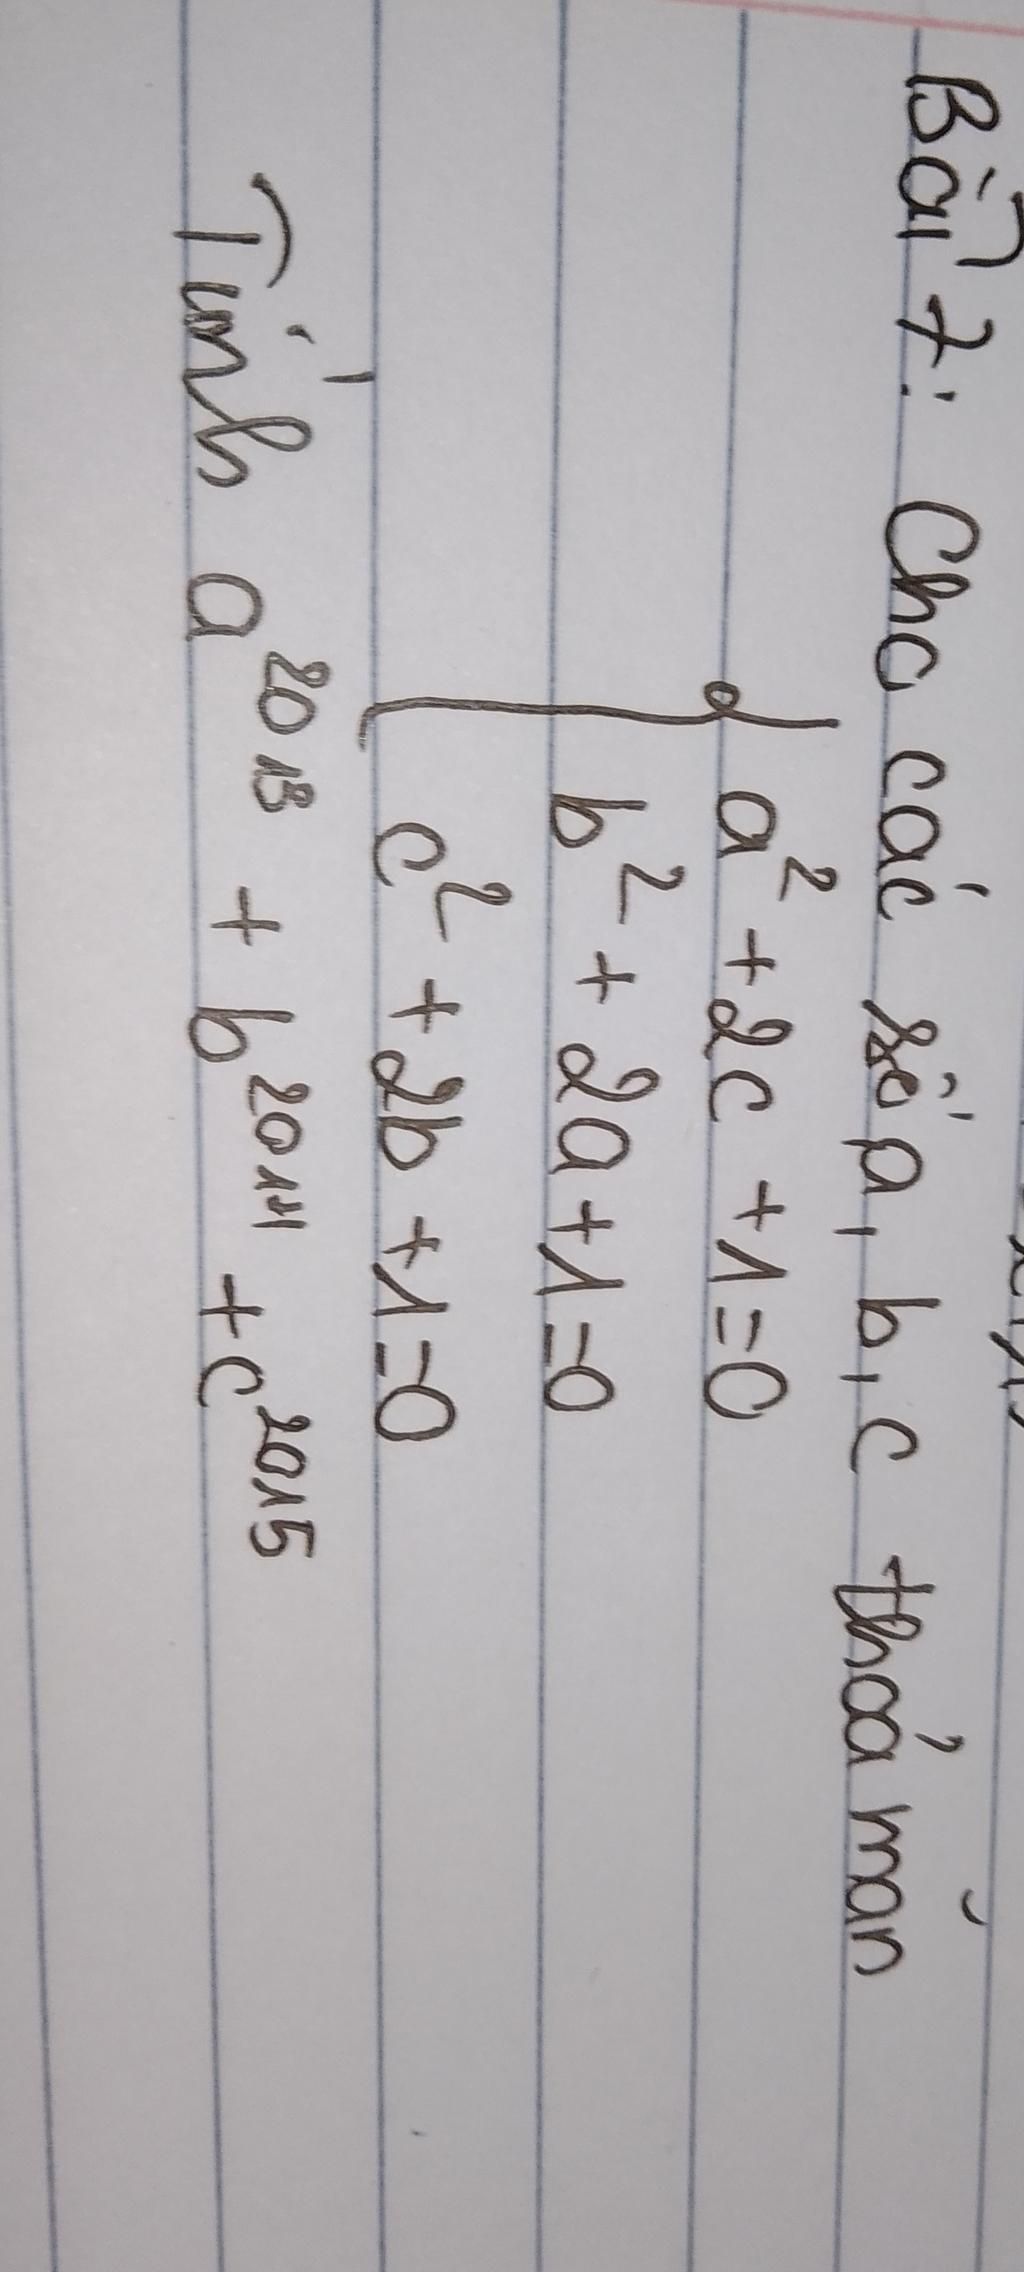 Bài 7: Cho các số a, b, c thoả mãn
a² + 2c + 1 = 0
b² + 2a + 1 = 0
c² + 2b + 1 = 0
Tính a²⁰¹³ + b²⁰¹⁴ + c²⁰¹⁵